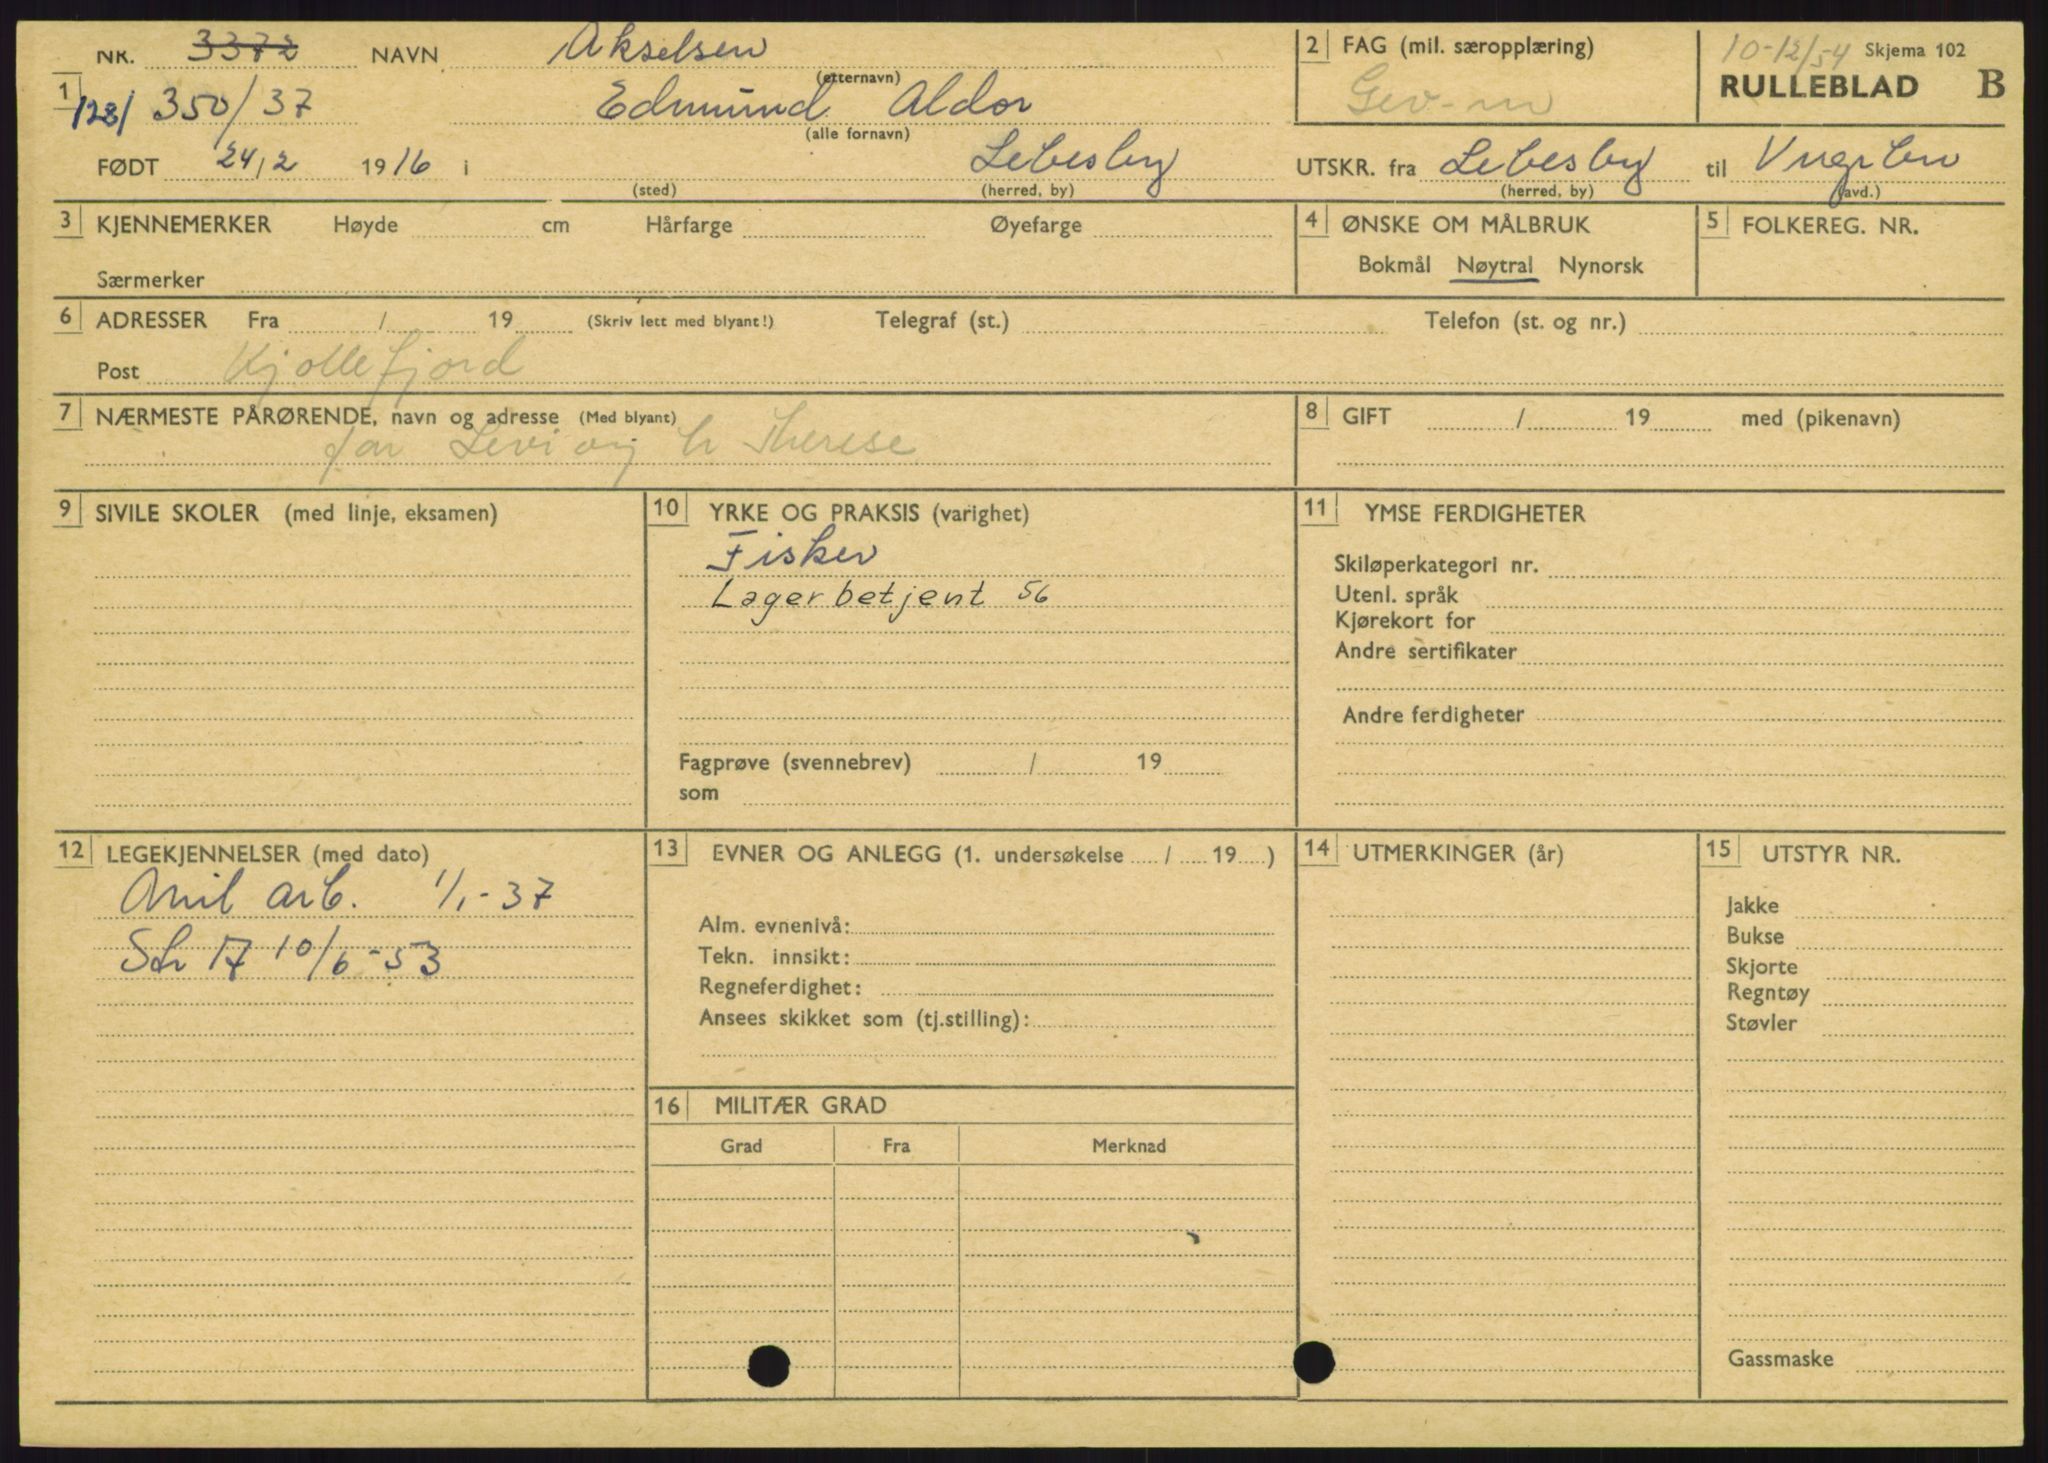 NR. 3372 NAVN Akselsen
(etternavn)
1 128/ 350/37 Edmund Aldor
(alle fornavn)
FØDT 24/2 1916 i Lebesby
(sted) (herred, by)
2 FAG (mil. særopplæring)
Gev-m
10-12/54 Skjema 102
RULLEBLAD B
UTSKR. fra Lebesby til
(herred, by) (avd.)
3 KJENNEMERKER Høyde cm Hårfarge Øyefarge
Særmerker
4 ØNSKE OM MÅLBRUK
Bokmål Nøytral Nynorsk
5 FOLKEREG. NR.
6 ADRESSER Fra / 19 (Skriv lett med blyant!) Telegraf (st.) Telefon (st. og nr.)
Post Kjøllefjord
7 NÆRMESTE PÅRØRENDE, navn og adresse (Med blyant)
far Levi og h Therese
8 GIFT / 19 med (pikenavn)
9 SIVILE SKOLER (med linje, eksamen)
10 YRKE OG PRAKSIS (varighet)
Fisker
Lagerbetjent 56
Fagprøve (svennebrev) / 19
som
11 YMSE FERDIGHETER
Skiløperkategori nr.
Utenl. språk
Kjørekort for
Andre sertifikater
Andre ferdigheter
12 LEGEKJENNELSER (med dato)
Amil arb. 1/1-37
10/6-53
13 EVNER OG ANLEGG (1. undersøkelse / 19 )
Alm. evnenivå:
Tekn. innsikt:
Regneferdighet:
Ansees skikket som (tj.stilling):
14 UTMERKINGER (år)
15 UTSTYR NR.
Jakke
Bukse
Skjorte
Regntøy
Støvler
Gassmaske
16 MILITÆR GRAD
Grad Fra Merknad